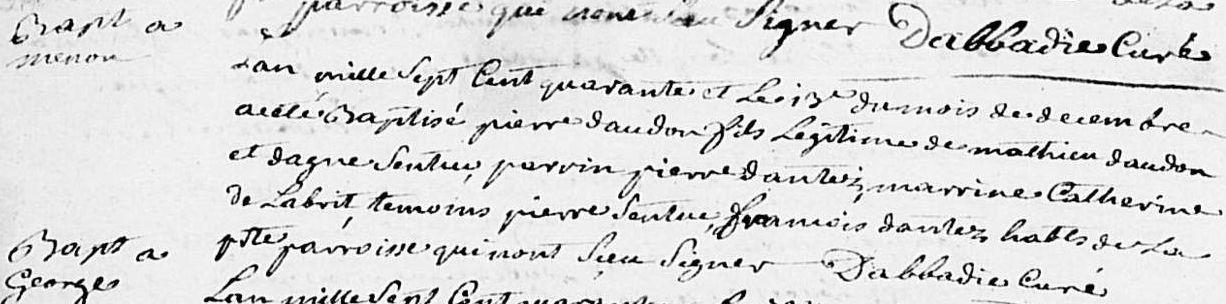 parroisse qui nont sceu Signer Dabbadie Curé
Bapt a
menou
Lan mille Sept Cent quarante et Le 13e du mois de decembre
a eté Baptisé pierre daudon fils Legitime de mathieu daudon
et dagne Sentuc, parrin pierre dantez, marrine Catherine
de Labrit, temoins pierre Sentuc, francois dantez habts de La
pnte parroisse qui nont Sçeu Signer Dabbadie Curé
Bapt a
George
Lan mille Sept Cent